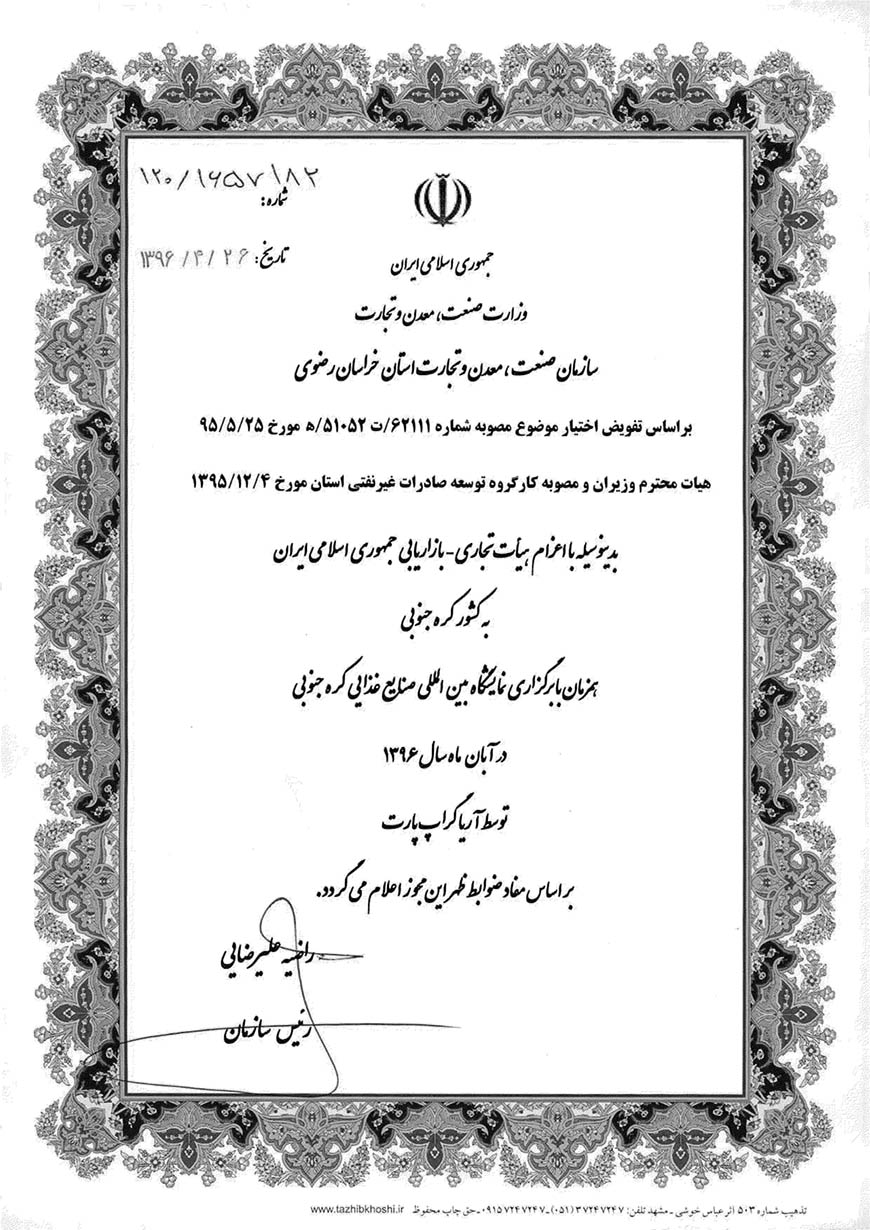 ۱۲۰/۱۶۵۷۱۸۲
شماره:
تاریخ: ۱۳۹۶/۴/۲۶
جمهوری اسلامی ایران
وزارت صنعت، معدن و تجارت
سازمان صنعت، معدن و تجارت استان خراسان رضوی
براساس تفویض اختیار موضوع مصوبه شماره ۶۲۱۱۱/ت ۵۱۰۵۲/ه مورخ ۹۵/۵/۲۵
هیات محترم وزیران و مصوبه کارگروه توسعه صادرات غیرنفتی استان مورخ ۱۳۹۵/۱۲/۴
بدینوسیله با اعزام هیأت تجاری-بازاریابی جمهوری اسلامی ایران
به کشور کره جنوبی
همزمان با برگزاری نمایشگاه بین المللی صنایع غذایی کره جنوبی
در آبان ماه سال ۱۳۹۶
توسط آریا گراپ پارت
بر اساس مفاد ضوابط ظهر این مجوز اعلام می گردد.
راضیه علیرضایی
رئیس سازمان
تذهیب شماره ۵۰۳ اثر عباس خوشی - مشهد تلفن: ۳۷۲۴۷۲۴۷ (۰۵۱) - ۰۹۱۵۷۲۴۷۲۴۷ - حق چاپ محفوظ www.tazhibkhoshi.ir